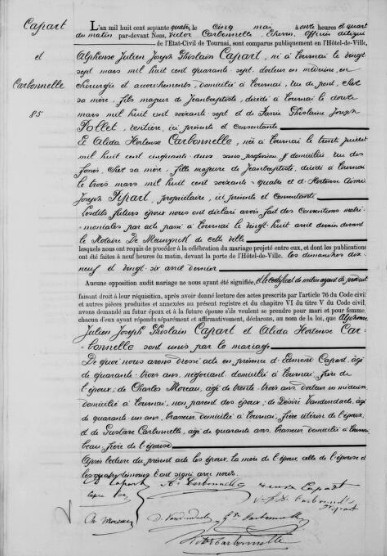 Capart
et
Carbonnelle
85
L'an mil huit cent septante quatre, le cinq mai, onze heures et quart
du matin par-devant Nous, Victor Carbonnelle Echevin, Officier délégué
de l'Etat-Civil de Tournai, sont comparus publiquement en l'Hôtel-de-Ville,
Alphonse Julien Joseph Ghislain Capart, né à Tournai le vingt
sept mars mil huit cent quarante sept, docteur en médecine en
chirurgie et accouchements, domicilié à Tournai, rue de pont, chez
sa mère, fils majeur de Jeanbaptiste, décédé à Tournai le douze
mars mil huit cent soixante sept et de Fanie Ghislaine Joseph
Pollet, rentière, ici présente et consentante
Et Alida Hortense Carbonnelle, née à Tournai le huit
mil huit cent cinquante deux sans profession y domiciliée rue des
chez sa mère, fille majeure de Jeanbaptiste, décédé à Tournai
le trois mars mil huit cent soixante quatre et de Hortense Aimée
Joseph Pipart, propriétaire, ici présente et consentante
Lesdits futurs époux nous ont déclaré avoir fait des conventions matri-
moniales par acte passé à Tournai le vingt huit avril dernier devant
le Notaire De de cette ville
lesquels nous ont requis de procéder à la célébration du mariage projeté entre eux, et dont les publications
ont été faites à neuf heures du matin, devant la porte de l'Hôtel-de-Ville, les dimanches dix
neuf et vingt six avril dernier
Aucune opposition audit mariage ne nous ayant été signifiée,
faisant droit à leur réquisition, après avoir donné lecture des actes prescrits par l'article 76 du Code civil
et autres pièces produites et annexées au présent registre et du chapitre VI du titre V du Code civil,
avons demandé au futur époux et à la future épouse s'ils veulent se prendre pour mari et pour femme,
chacun d'eux ayant répondu séparément et affirmativement, déclarons, au nom de la loi, que Alphonse
Julien Joseph Ghislain Capart et Alida Hortense Car
bonnelle sont unis par le mariage
De quoi nous avons dressé acte en présence d' Capart, âgé
de quarante trois ans, négociant domicilié à Tournai, frère de
l'époux, de Charles Moreau, âgé de trente trois ans docteur en médecine
domicilié à Tournai, non parent des époux, de Désiré Vandendaele, âgé
de quarante un ans, brasseur domicilié à Tournai, frère utérin de l'époux,
et de Gustave Carbonnelle, âgé de quarante ans brasseur domicilié à Tournai
beau, frère de l'épouse
Après lecture du présent acte les époux, la mère de l'époux celle de l'épouse et
les quatre témoins l'ont signé avec nous.
A. Capart A. Carbonnelle Capart
Carbonnelle
Ch. Moreau D. Vandendaele G. Carbonnelle
Vor Carbonnelle